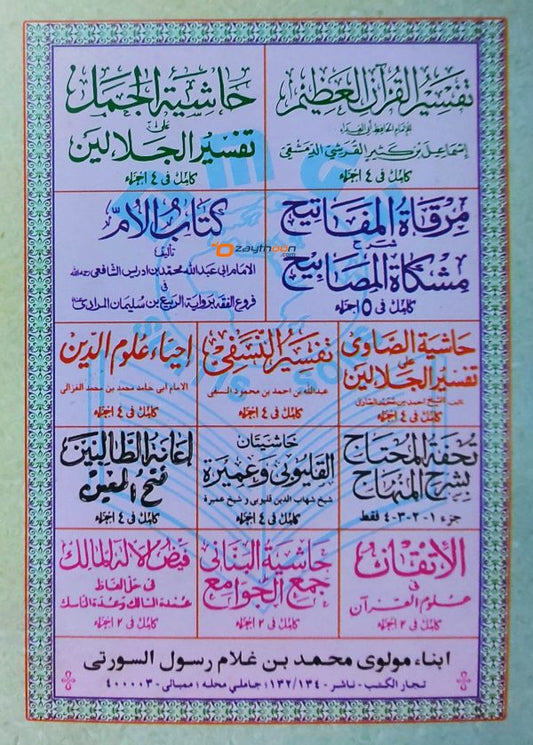 تفسير القرآن العظيم
للإمام الحافظ أبو الفداء
إسماعيل بن كثير القرشي الدمشقي
كامل فى ٤ اجزاء
حاشية الجمل
على
تفسير الجلالين
كامل فى ٤ اجزاء
مرقاة المفاتيح
شرح
مشكاة المصابيح
كامل فى ٥ اجزاء
كتاب الأم
تأليف
الامام ابى عبدالله محمد بن ادريس الشافعى رحمه الله
فى
فروع الفقه برواية الربيع بن سليمان المرادى
zaytoon.com
حاشية الصاوى
على
تفسير الجلالين
الشيخ احمد بن محمد الصاوى
كامل فى ٤ اجزاء
تفسير النسفى
عبدالله بن احمد بن محمود النسفى
كامل فى ٤ اجزاء
احياء علوم الدين
الامام أبى حامد محمد بن محمد الغزالى
كامل فى ٤ اجزاء
تحفة المحتاج
بشرح المنهاج
جزء ١-٢-٣-٤ فقط
حاشيتان
القليوبى وعميرة
شيخ شهاب الدين قليوبى و شيخ عميرة
كامل فى ٤ اجزاء
إعانة الطالبين
فتح المعين
كامل فى ٤ اجزاء
الإتقان
فى
علوم القرآن
كامل فى ٢ اجزاء
حاشية البنانى
جمع الجوامع
كامل فى ٢ اجزاء
فيض الإله المالك
فى حل الفاظ
عمدة السالك وعدة الناسك
كامل فى ٢ اجزاء
ابناء مولوى محمد بن غلام رسول السورتى
تجار الكتب - ناشر - ١٣٢/١٣٤، جاملي محله، ممبائى - ٤٠٠٠٠٣